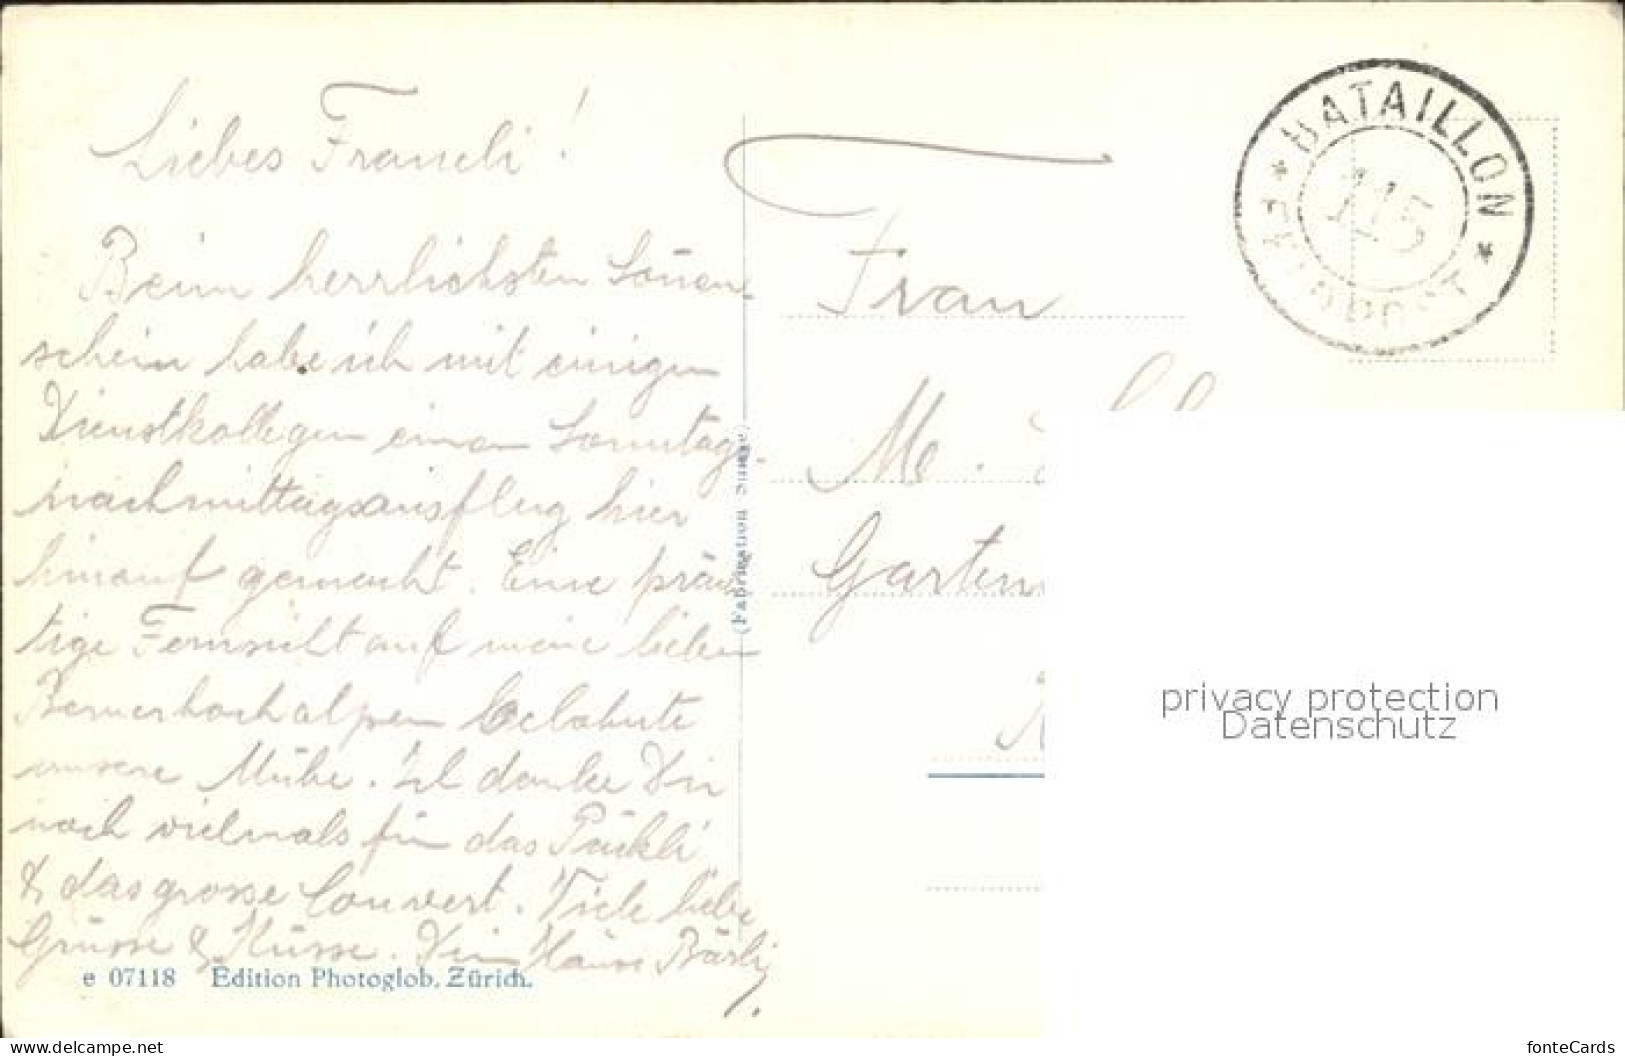 Liebes Fraueli!
Beim herrlichsten Sonnen-
schein habe ich mit einigen
Dienstkollegen einen Sonntag-
nachmittagsausflug hier
hinauf gemacht. Eine präch-
tige Fernsicht auf meine lieben
Bernerhochalpen belohnte
unsere Mühe. Ich danke Dir
noch vielmals für das Päckli
& das grosse Couvert. Viele liebe
Grüsse & Küsse. Dein
e 07118 Edition Photoglob, Zürich.
(Fabrication Suisse)
* BATAILLON *
FELDPOST
115
Frau
M.
Garten
privacy protection
Datenschutz
www.delcampe.net
fonteCards